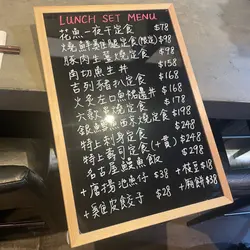 LUNCH SET MENU
花魚一夜干定食 $78
燒鮮雞腿定食(限定) $98
豚肉生薑燒定食 $98
角切魚生丼 $158
吉列豬扒定食 $168
火炙左口魚裙邊丼 $168
六款天婦羅定食 $168
銀鱈魚西京燒定食 $248
特上刺身定食 $248
特上壽司定食(十貫) $298
名古屋鰻魚飯 $298
+唐揚池魚仔 $38 +枝豆 $18
+雞皮餃子 $28 $38